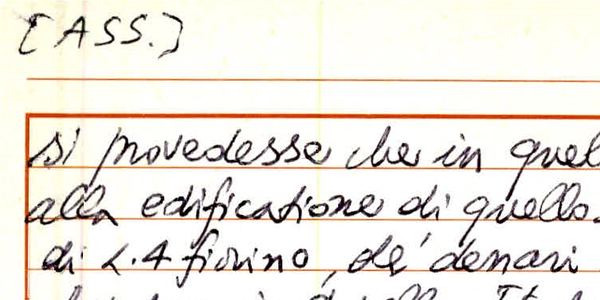 [ASS.]
si provedesse che in quel
alla edificatione di quello.
di L.4 fiorino, de' denari